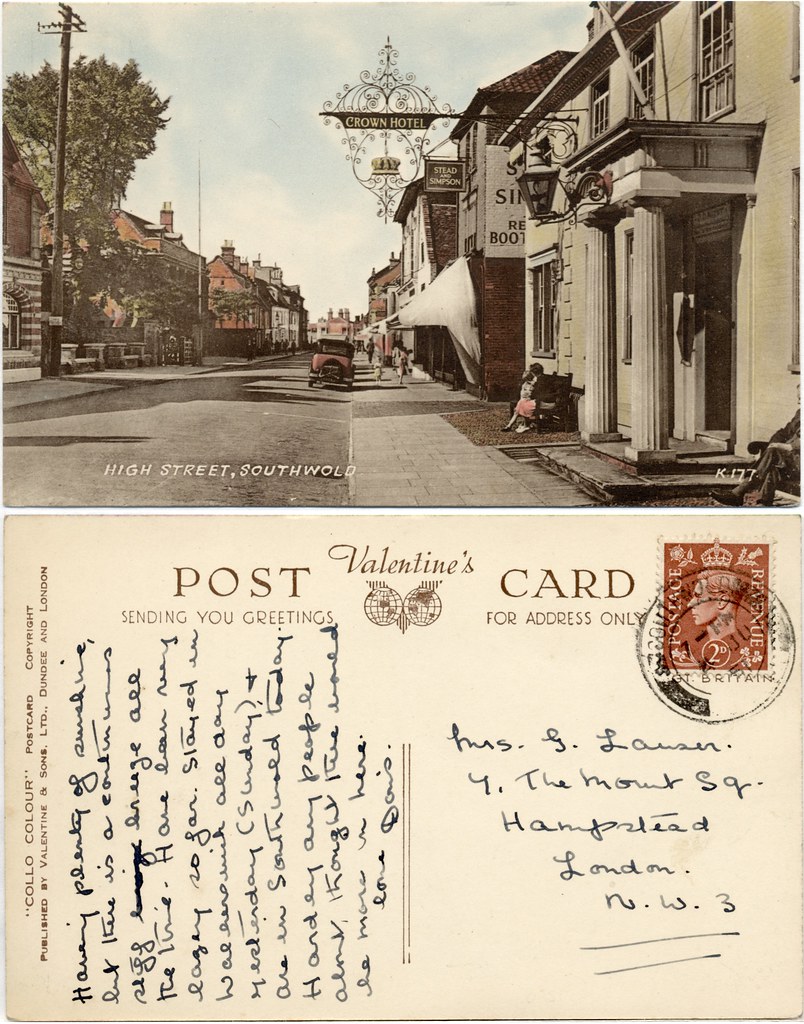 CROWN HOTEL
STEAD
AND
SIMPSON
S
SI
RE
BOOT
HIGH STREET, SOUTHWOLD
K.177.
"COLLO COLOUR" POSTCARD COPYRIGHT
PUBLISHED BY VALENTINE & SONS, LTD., DUNDEE AND LONDON
Valentine's
POST CARD
SENDING YOU GREETINGS
FOR ADDRESS ONLY
POSTAGE REVENUE
2D
GT. BRITAIN
Having plenty of sunshine,
but there is a continuous
stiff breeze all
the time. Have been very
lazy so far. Stayed in
Walberswick all day
yesterday (Sunday) &
are in Southwold today.
Hardly any people
about, thought there would
be more in here.
love Doris.
Mrs. G. Lauser.
4, The Mount Sq.
Hampstead
London.
N.W.3